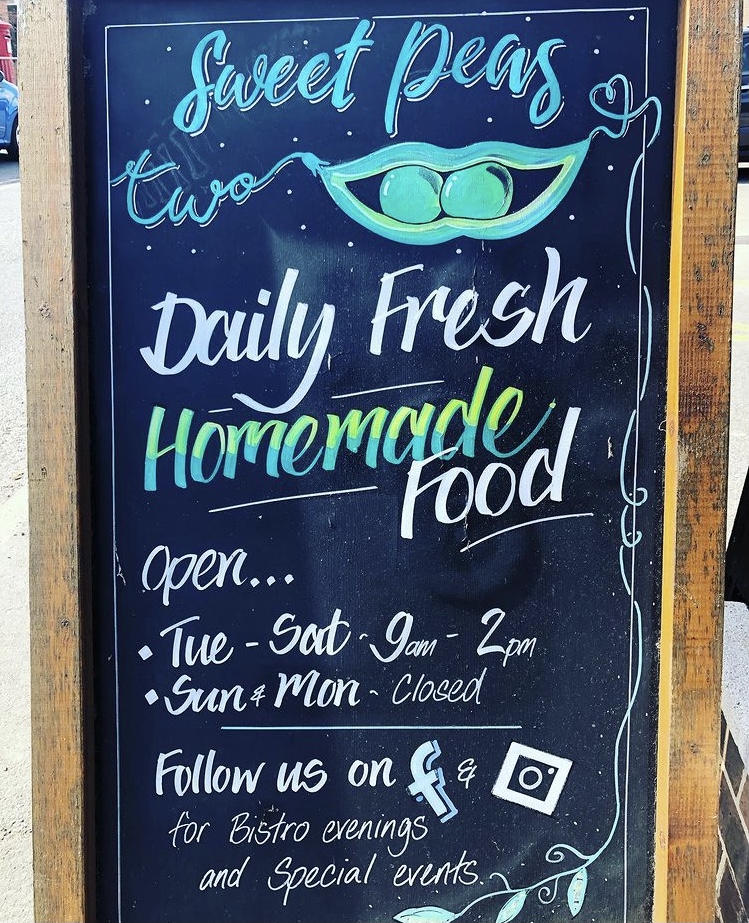 Sweet Peas
two
Daily Fresh
Homemade
Food
Open...
• Tue - Sat - 9am - 2pm
• Sun & Mon - Closed
Follow us on f &
for Bistro evenings
and Special events.